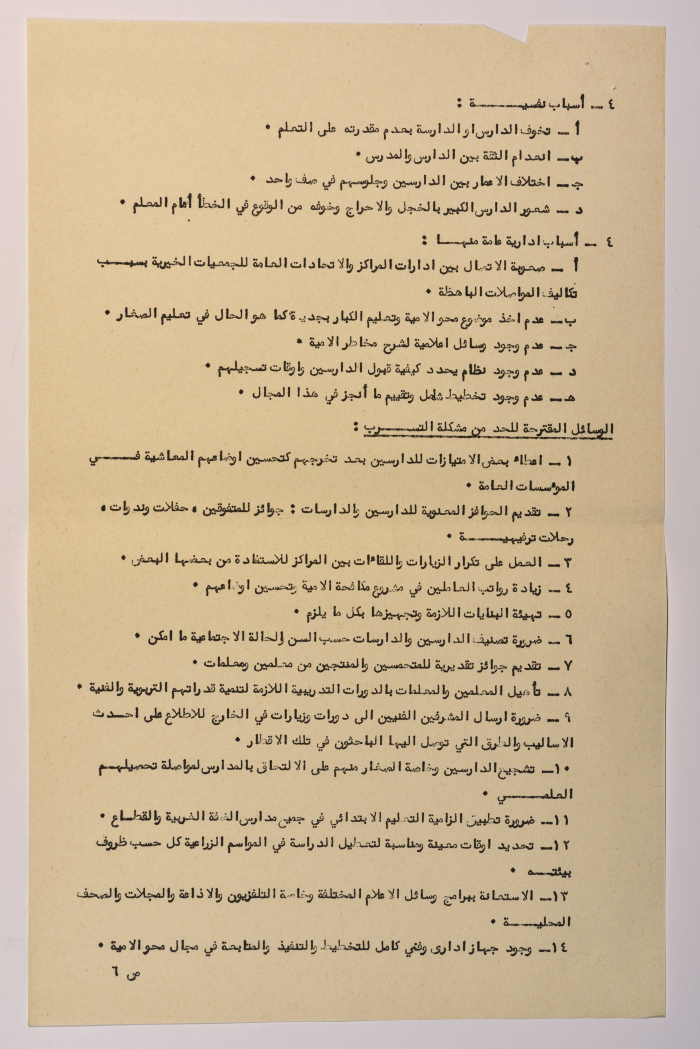 ٤ ــ أسباب نفسيـــــــــة :
أ ــ تخوف الدارس او الدارسة بعدم مقدرته على التعلم •
ب ــ انعدام الثقة بين الدارس والمدرس •
جـ ــ اختلاف الاعمار بين الدارسين وجلوسهم في صف واحد •
د ــ شعور الدارس الكبير بالخجل والاحراج وخوفه من الوقوع في الخطأ أمام المعلم •
٤ ــ أسباب ادارية عامة منهــا :
أ ــ صعوبة الاتصال بين ادارات المراكز والاتحادات العامة للجمعيات الخيرية بسبــــب
تكاليف المواصلات الباهظة •
ب ــ عدم اخذ موضوع محو الامية وتعليم الكبار بجدية كما هو الحال في تعليم الصغار •
جـ ــ عدم وجود وسائل اعلامية لشرح مخاطر الامية •
د ــ عدم وجود نظام يحدد كيفية قبول الدارسين واوقات تسجيلهم •
هـ ــ عدم وجود تخطيط شامل وتقييم ما أنجز في هذا المجال •
الوسائل المقترحة للحد من مشكلة التســـرب :
١ ــ اعطاء بعض الامتيازات للدارسين بعد تخرجهم كتحسين اوضاعهم المعاشية فــــي
المؤسسات العامة •
٢ ــ تقديم الحوافز المعنوية للدارسين والدارسات : جوائز للمتفوقين ، حفلات وندوات ،
رحلات ترفيهيــــــة •
٣ ــ العمل على تكرار الزيارات واللقاءات بين المراكز للاستفادة من بعضها البعض •
٤ ــ زيادة رواتب العاملين في مشروع مكافحة الامية وتحسين اوضاعهم •
٥ ــ تهيئة البنايات اللازمة وتجهيزها بكل ما يلزم •
٦ ــ ضرورة تصنيف الدارسين والدارسات حسب السن والحالة الاجتماعية ما امكن •
٧ ــ تقديم جوائز تقديرية للمتحمسين والمنتجين من معلمين ومعلمات •
٨ ــ تأهيل المعلمين والمعلمات بالدورات التدريبية اللازمة لتنمية قدراتهم التربوية والفنية •
٩ ــ ضرورة ارسال المشرفين الفنيين الى دورات وزيارات في الخارج للاطلاع على احــدث
الاساليب والطرق التي توصل اليها الباحثون في تلك الاقطار •
١٠ــ تشجيع الدارسين وخاصة الصغار منهم على الالتحاق بالمدارس لمواصلة تحصيلهـــم
العلمــــــي •
١١ــ ضرورة تطبيق الزامية التعليم الابتدائي في جميع مدارس الضفة الغربية والقطــاع •
١٢ــ تحديد اوقات معينة ومناسبة لتعطيل الدراسة في المواسم الزراعية كل حسب ظروف
بيئتــــه •
١٣ــ الاستعانة ببرامج وسائل الاعلام المختلفة وخاصة التلفزيون والاذاعة والمجلات والصحف
المحليـــــة •
١٤ــ وجود جهاز ادارى وفني كامل للتخطيط والتنفيذ والمتابعة في مجال محو الامية •
ص ٦